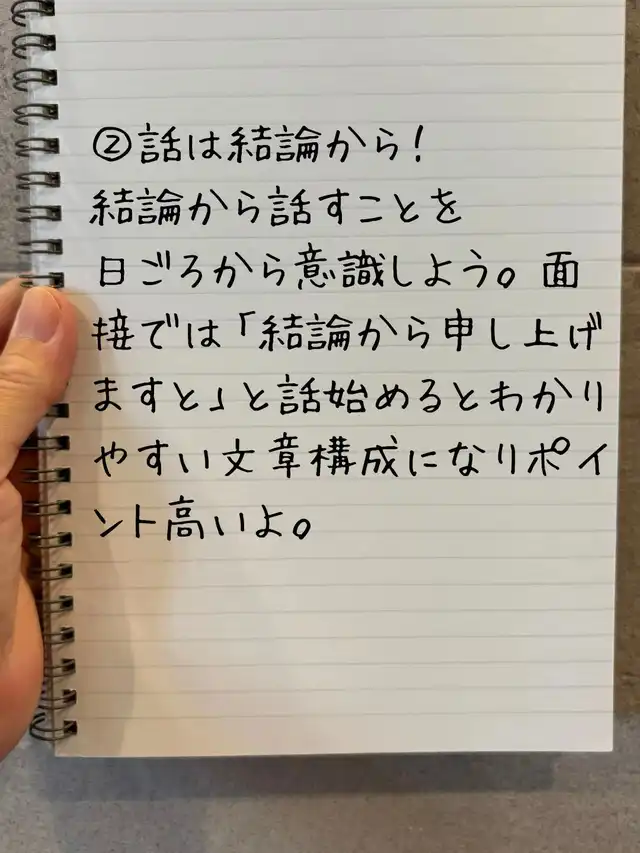 ②話は結論から！
結論から話すことを
日ごろから意識しよう。面
接では「結論から申し上げ
ますと」と話始めるとわかり
やすい文章構成になりポイ
ント高いよ。